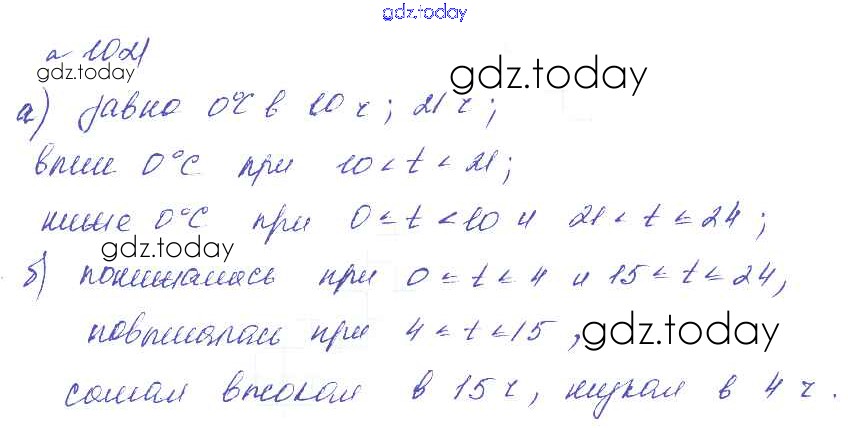 gdz.today
№ 1021
gdz.today
gdz.today
а) равно 0°C в 10 ч; 21 ч;
выше 0°C при 10 < t < 21;
ниже 0°C при 0 ≤ t < 10 и 21 < t ≤ 24;
gdz.today
б) понижалась при 0 ≤ t ≤ 4 и 15 ≤ t ≤ 24,
повышалась при 4 ≤ t ≤ 15,
gdz.today
самая высокая в 15 ч, низкая в 4 ч.